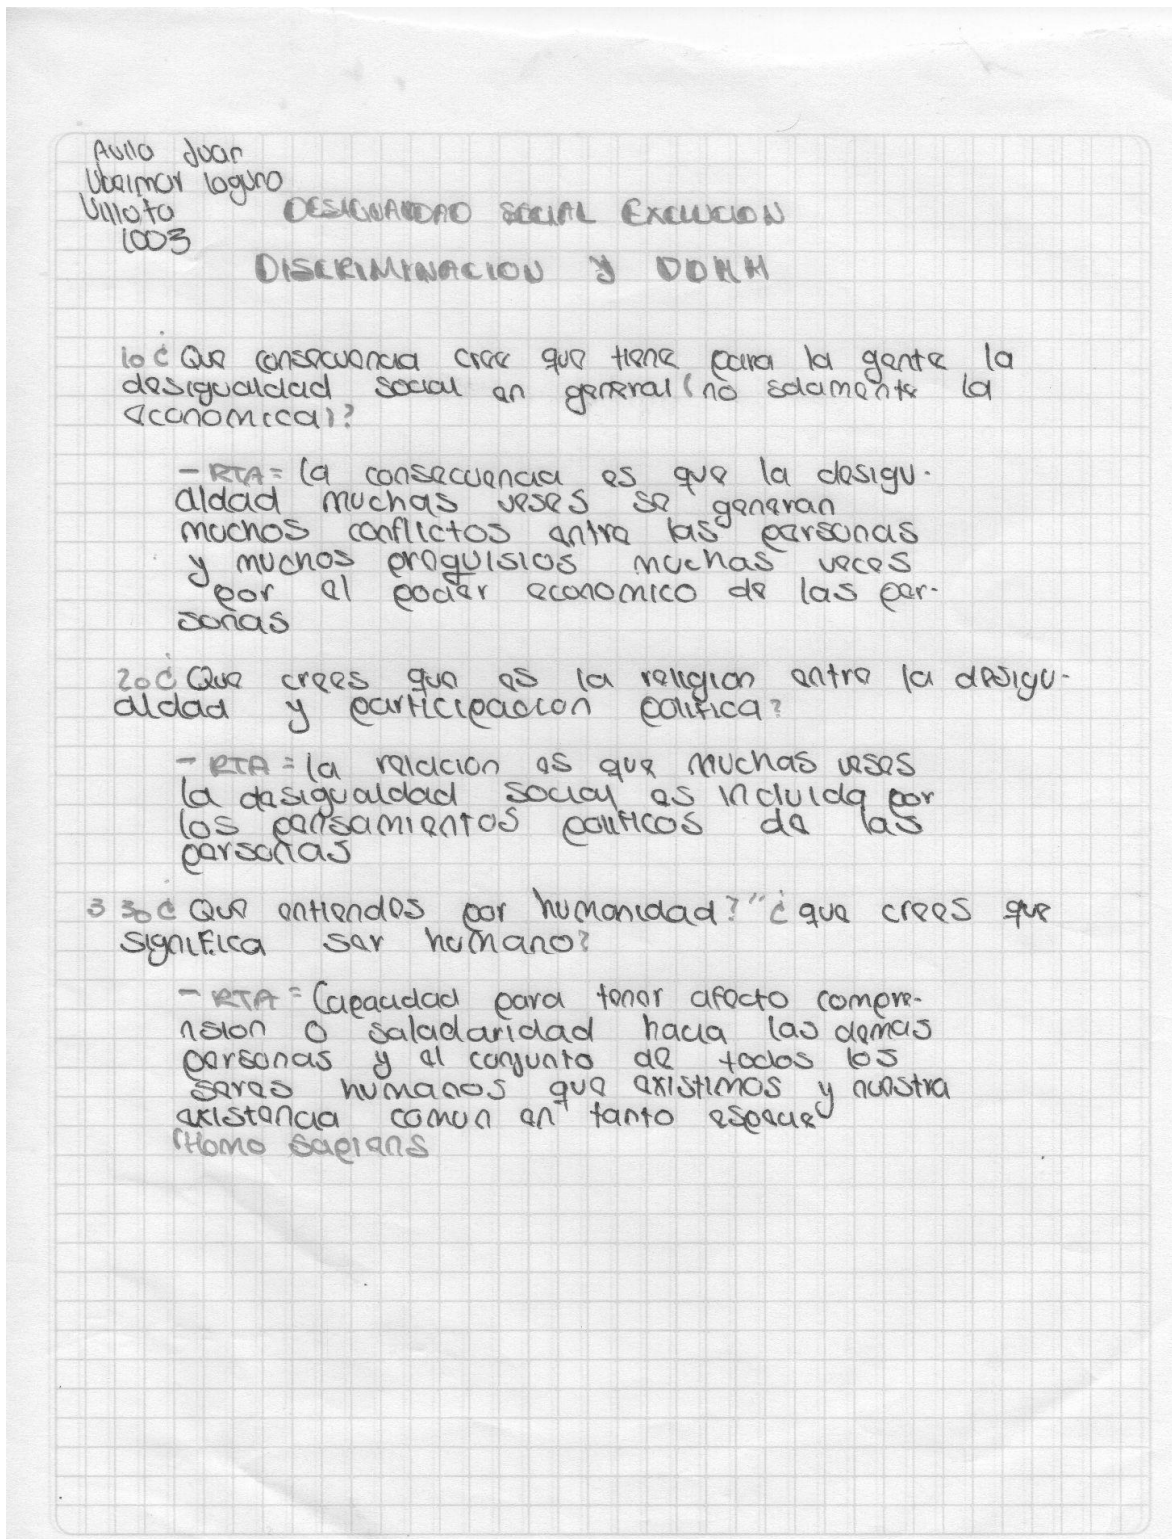 Avila Juan
Ubeimar laguno
Villota
1003
DESIGUALDAD SOCIAL EXCLUCION
DISCRIMINACION y DDHH
10 ¿ Que consecuencia cree que tiene para la gente la
desigualdad social en general (no solamente la
economica)?
- RTA = la consecuencia es que la desigu-
aldad muchas veses se generan
muchos conflictos entre las personas
y muchos preguisios muchas veces
por el poder economico de las per-
sonas
20 ¿ Que crees que es la religion entre la desigu-
aldad y participacion politica?
- RTA = la relacion es que muchas veses
la desigualdad social es incluida por
los pensamientos politicos de las
personas
3 30 ¿ Que entiendes por humanidad?" ¿ que crees que
significa ser humano?
- RTA = Capacidad para tener afecto compre-
nsion o saladaridad hacia las demas
personas y el conjunto de todos los
seres humanos que existimos y nuestra
existencia comun en tanto especie
(Homo sapiens